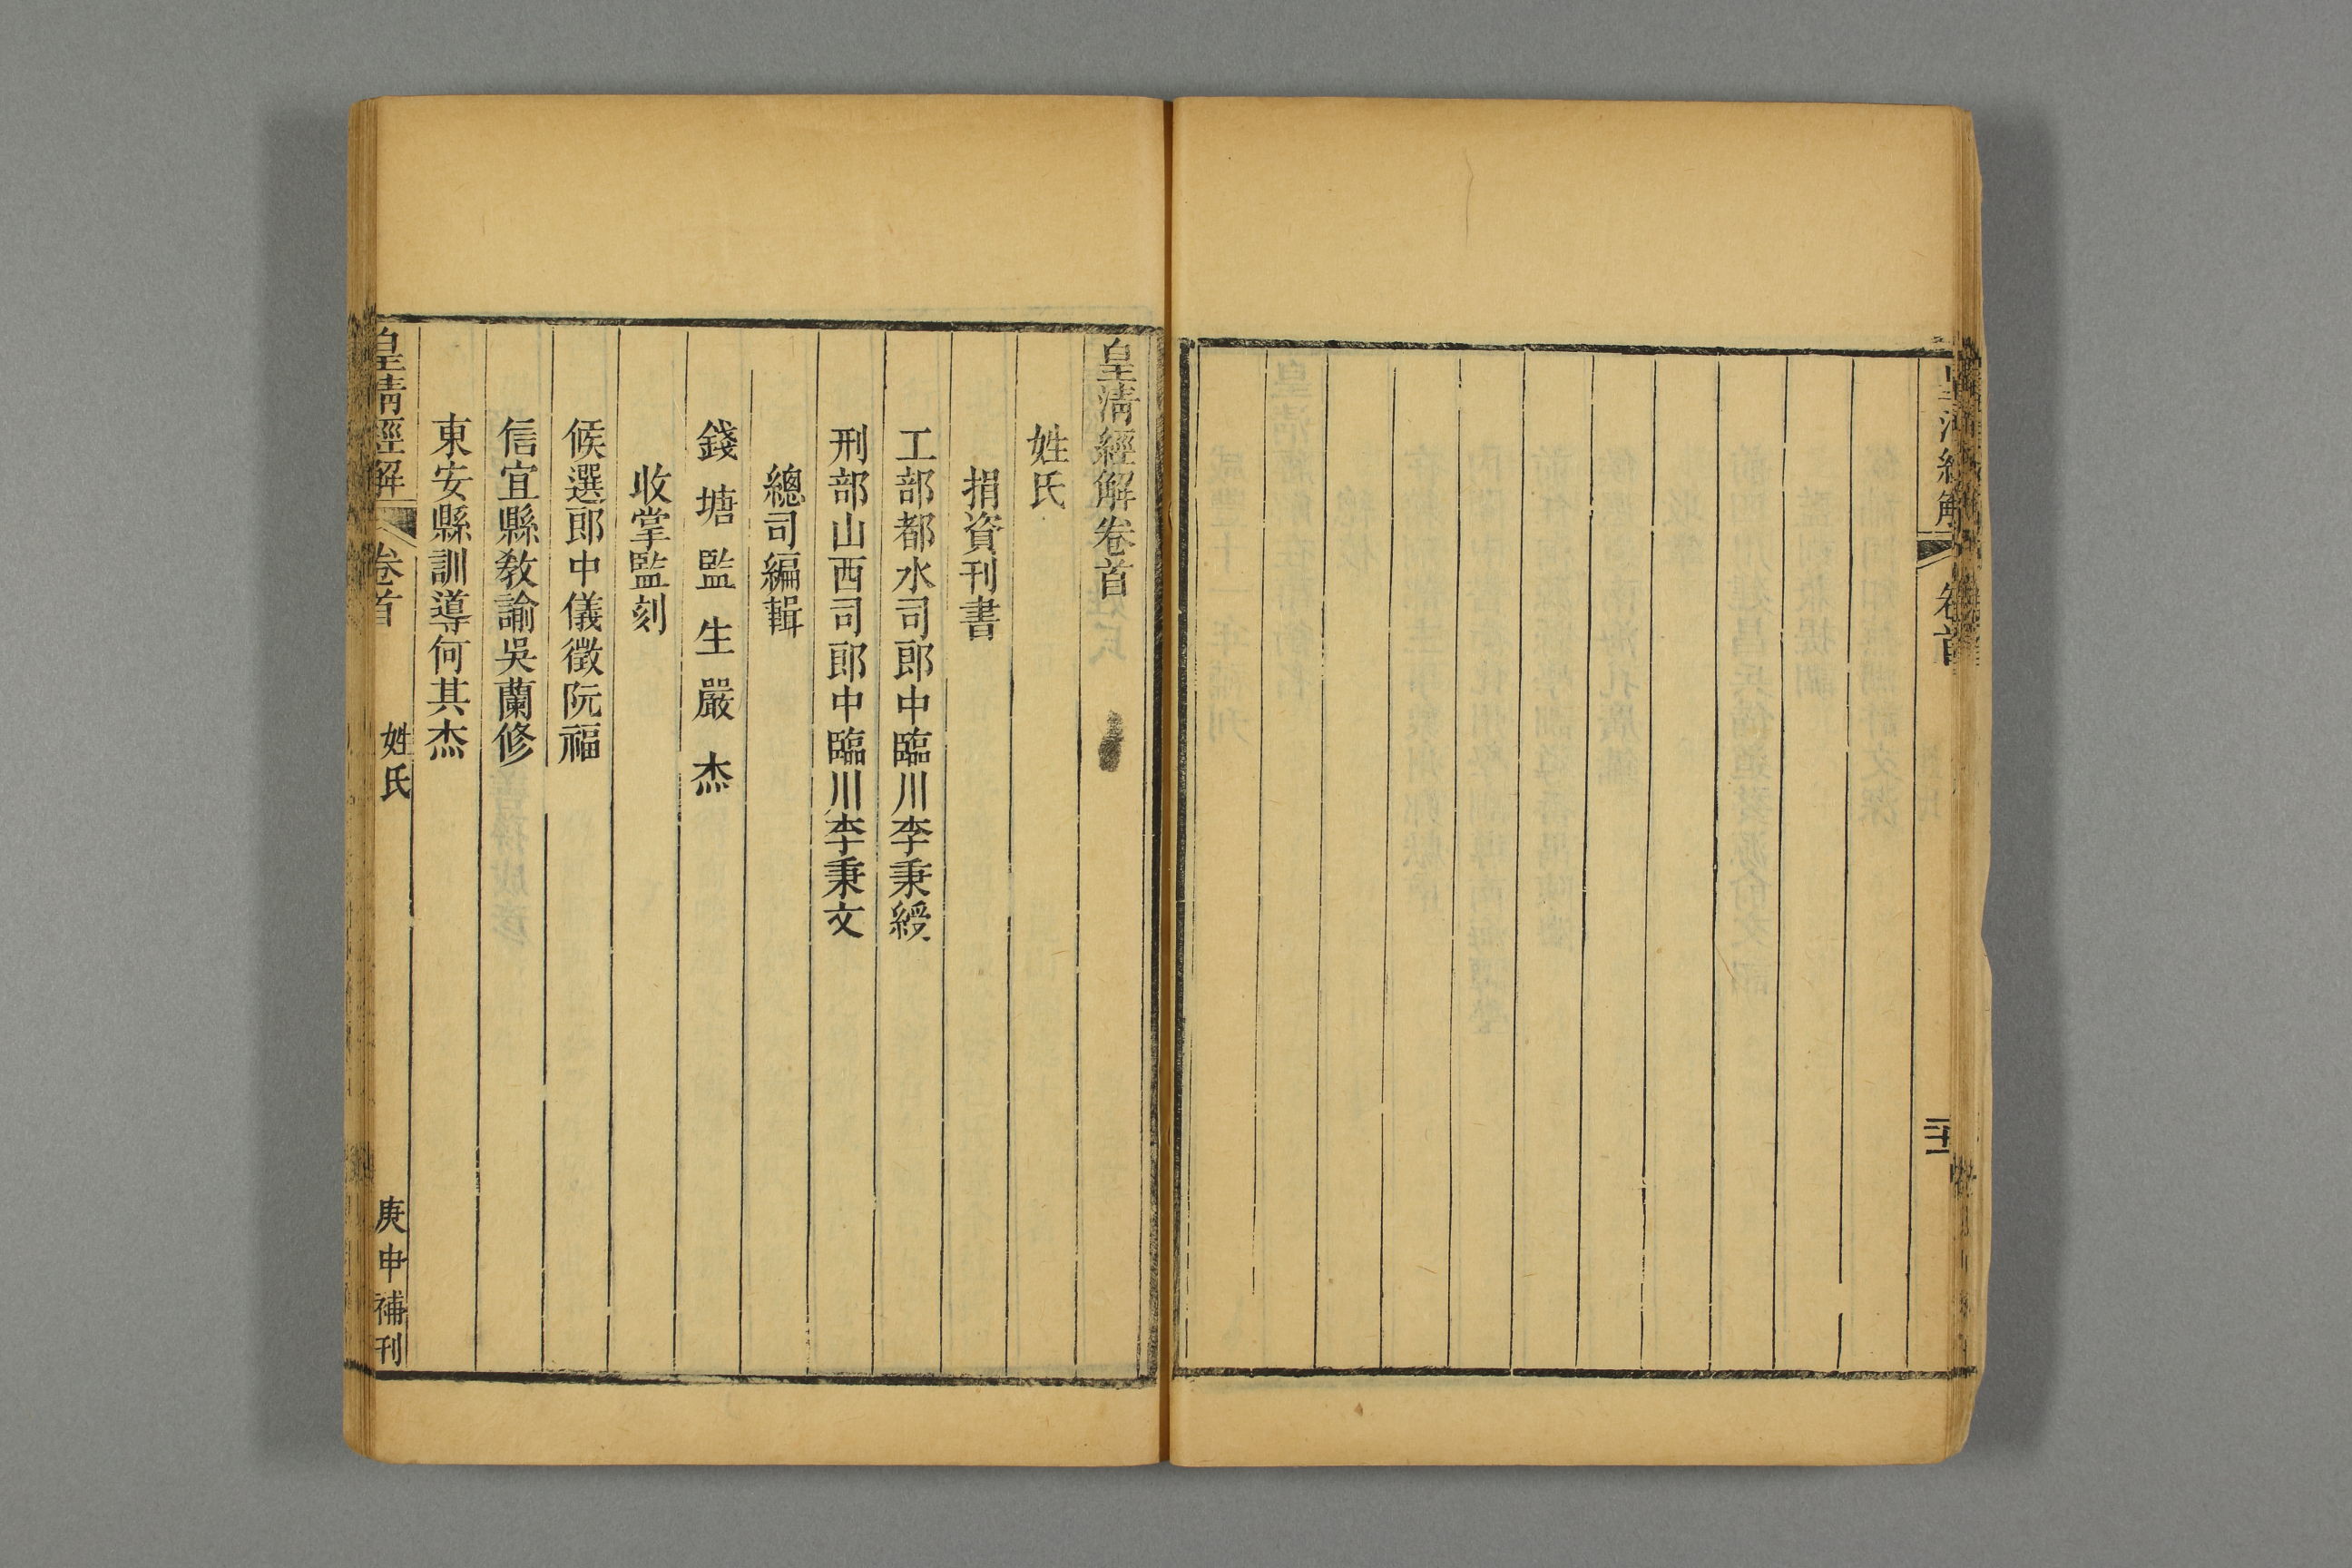 皇清經解
卷首
皇淸經解卷首
姓氏
捐資刊書
工部都水司郎中臨川李秉綬
刑部山西司郎中臨川李秉文
總司編輯
錢塘監生嚴杰
收掌監刻
候選郎中儀徵阮福
信宜縣敎諭吳蘭修
東安縣訓導何其杰
皇清經解
卷首
姓氏
庚申補刊